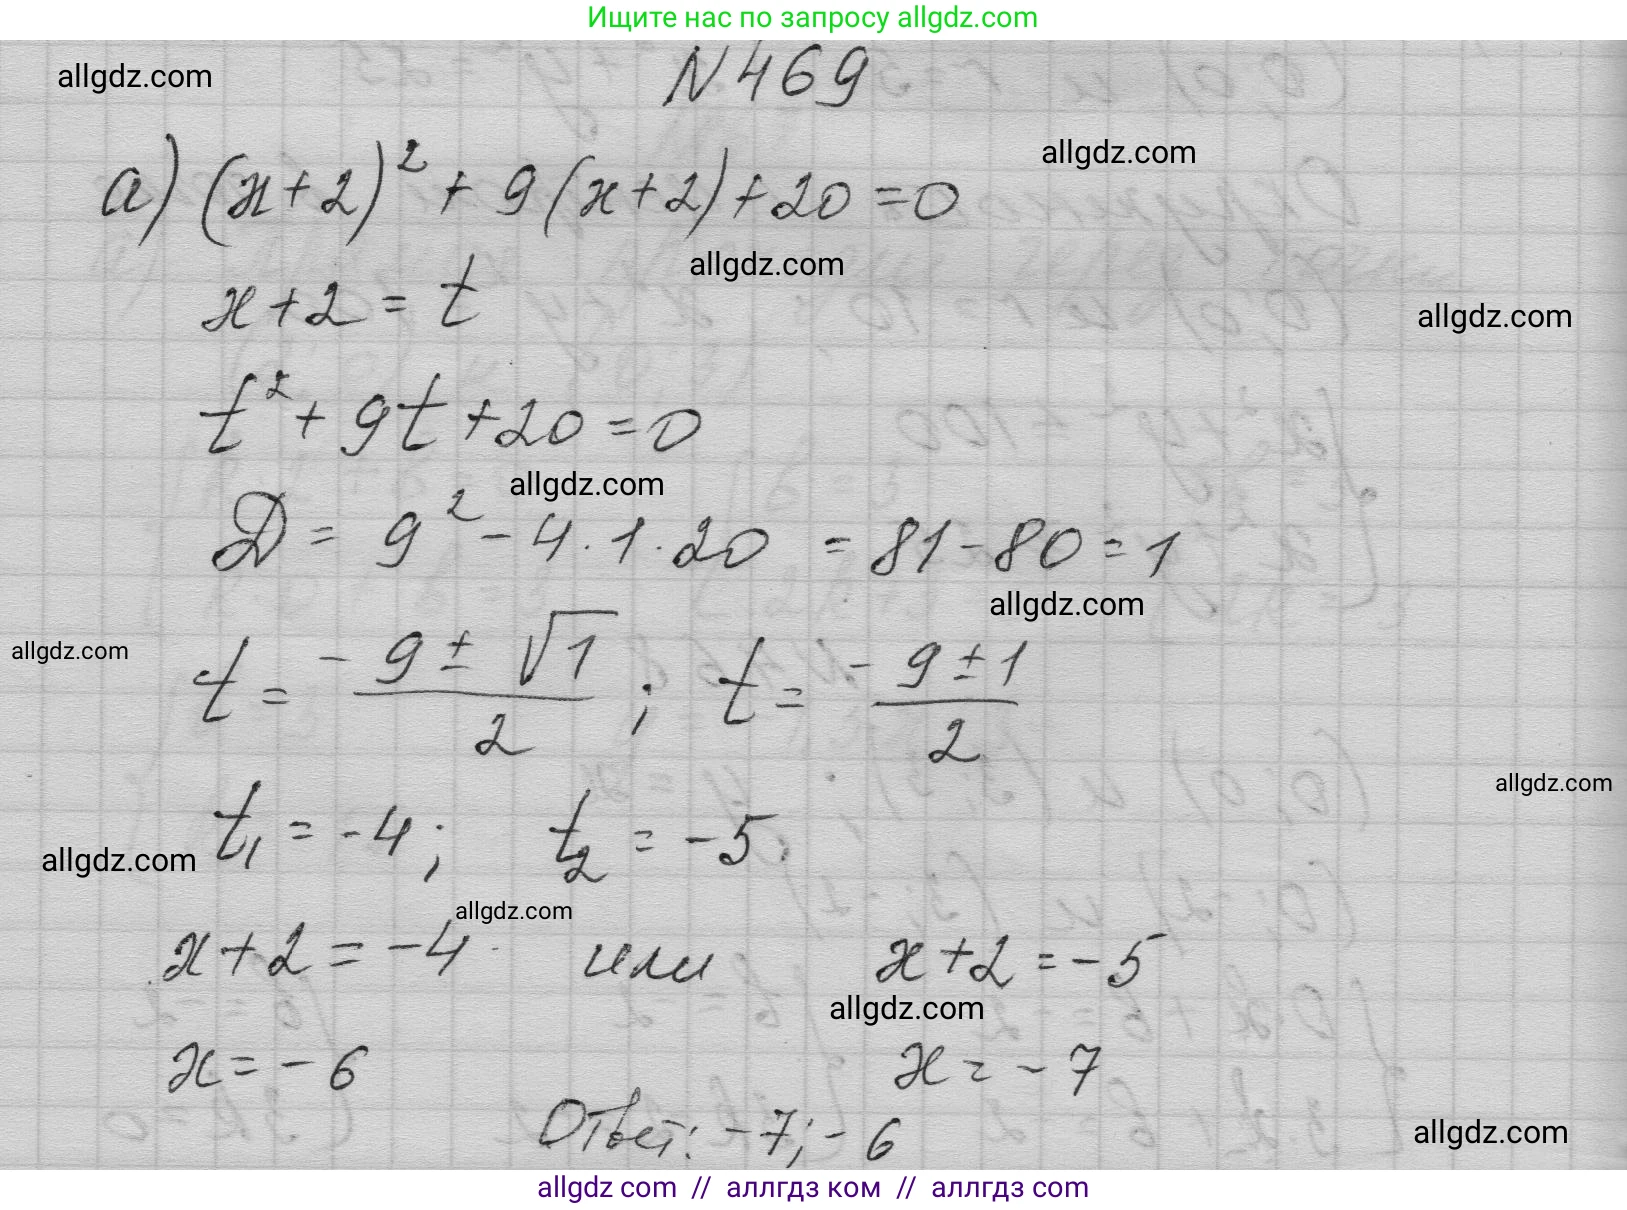 Ищите нас по запросу allgdz.com
allgdz.com
N 469
allgdz.com
а) (x+2)² + 9(x+2)+20=0
allgdz.com
x+2 = t
allgdz.com
t² + 9t +20=0
allgdz.com
Д = 9² - 4·1·20 = 81-80=1
allgdz.com
allgdz.com
t = (-9 ± √1)/2 ; t = (-9 ± 1)/2
allgdz.com
t₁ = -4; t₂ = -5.
allgdz.com
allgdz.com
x+2 = -4 или x+2 = -5
allgdz.com
x = -6 x = -7
Ответ: -7; -6
allgdz.com
allgdz com // аллгдз ком // аллгдз com